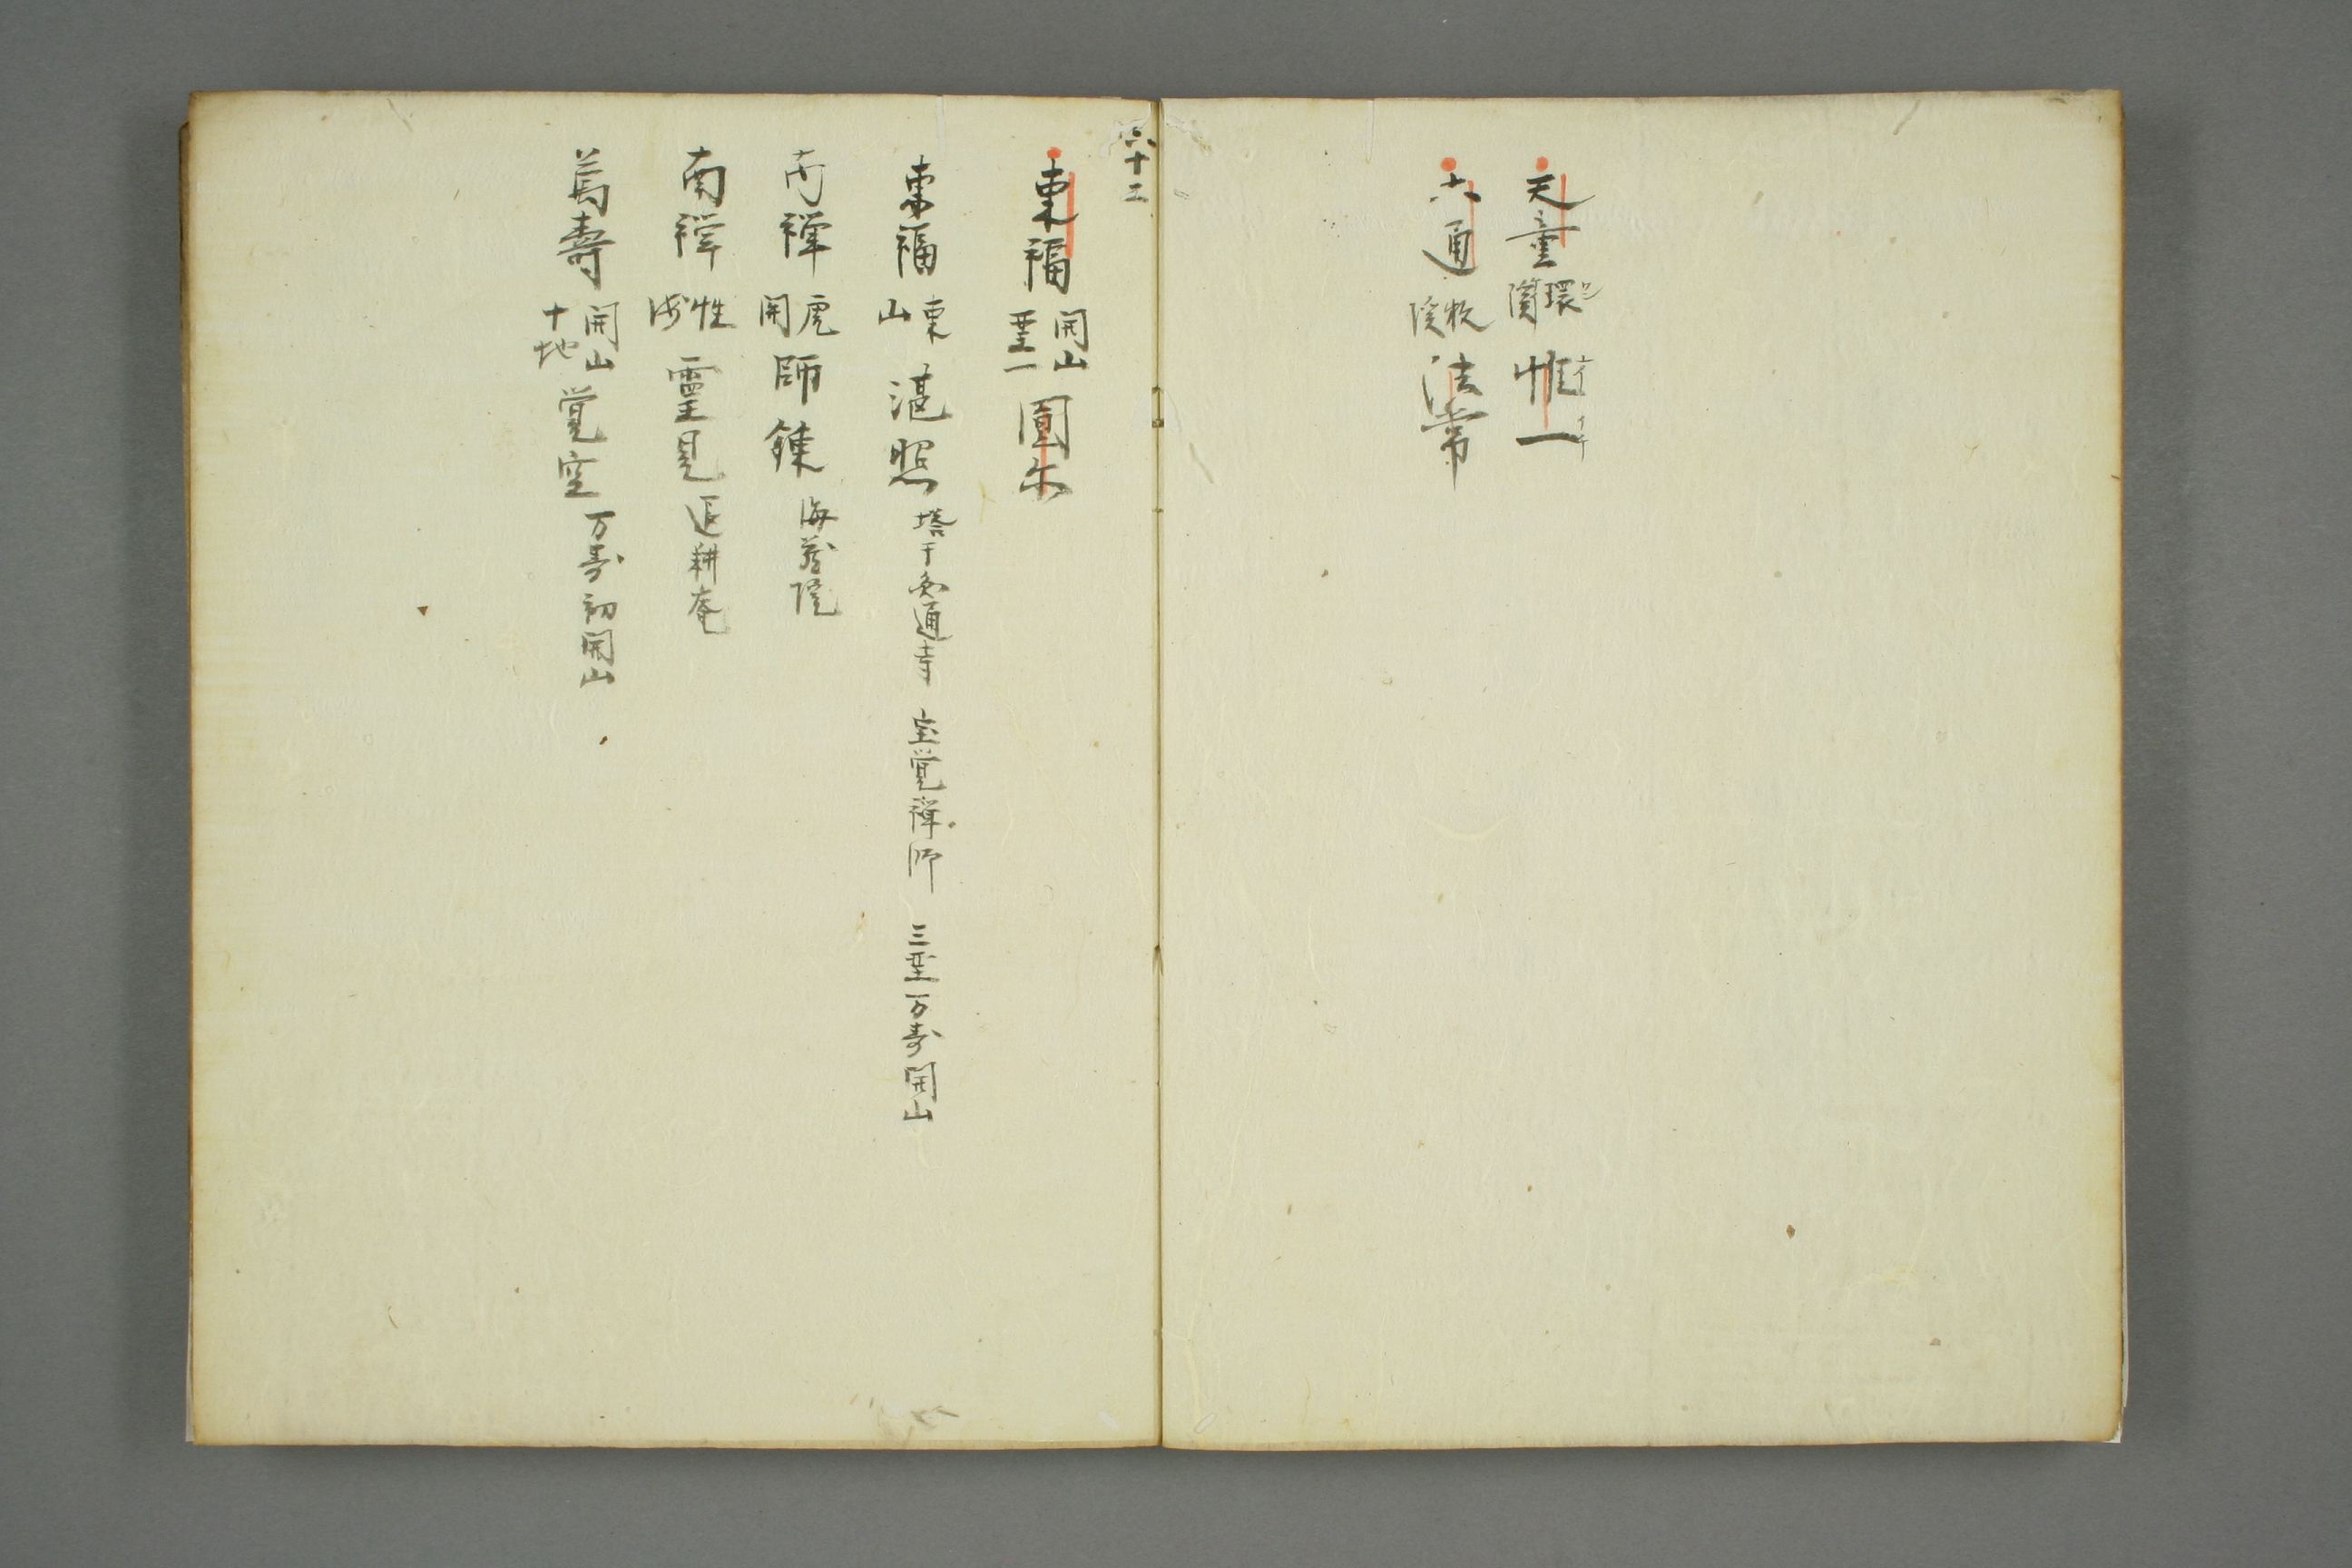 天童環溪惟一
六通牧溪法常
六十二
東福開山聖一圓尓
東福東山湛照 塔于万通寺 宝覚禅師 三聖万寿開山
南禅虎関師錬 海蔵院
南禅性海霊見 退耕庵
萬壽開山十地覚空 万寿初開山